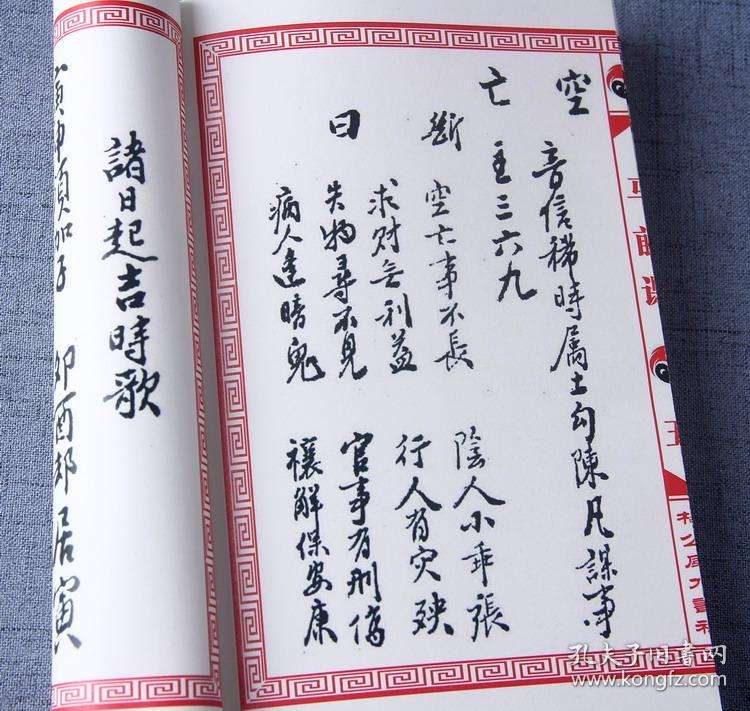 空亡
音信稀時属土勾陳凡謀事
主三六九
斷曰
空亡事不長 陰人小乖張
求财無利益 行人有灾殃
失物尋不見 官事有刑傷
病人逢暗鬼 禳解保安康
諸日起吉時歌
寅申須加子 卯酉却居寅
孔夫子旧书网
www.kongfz.com